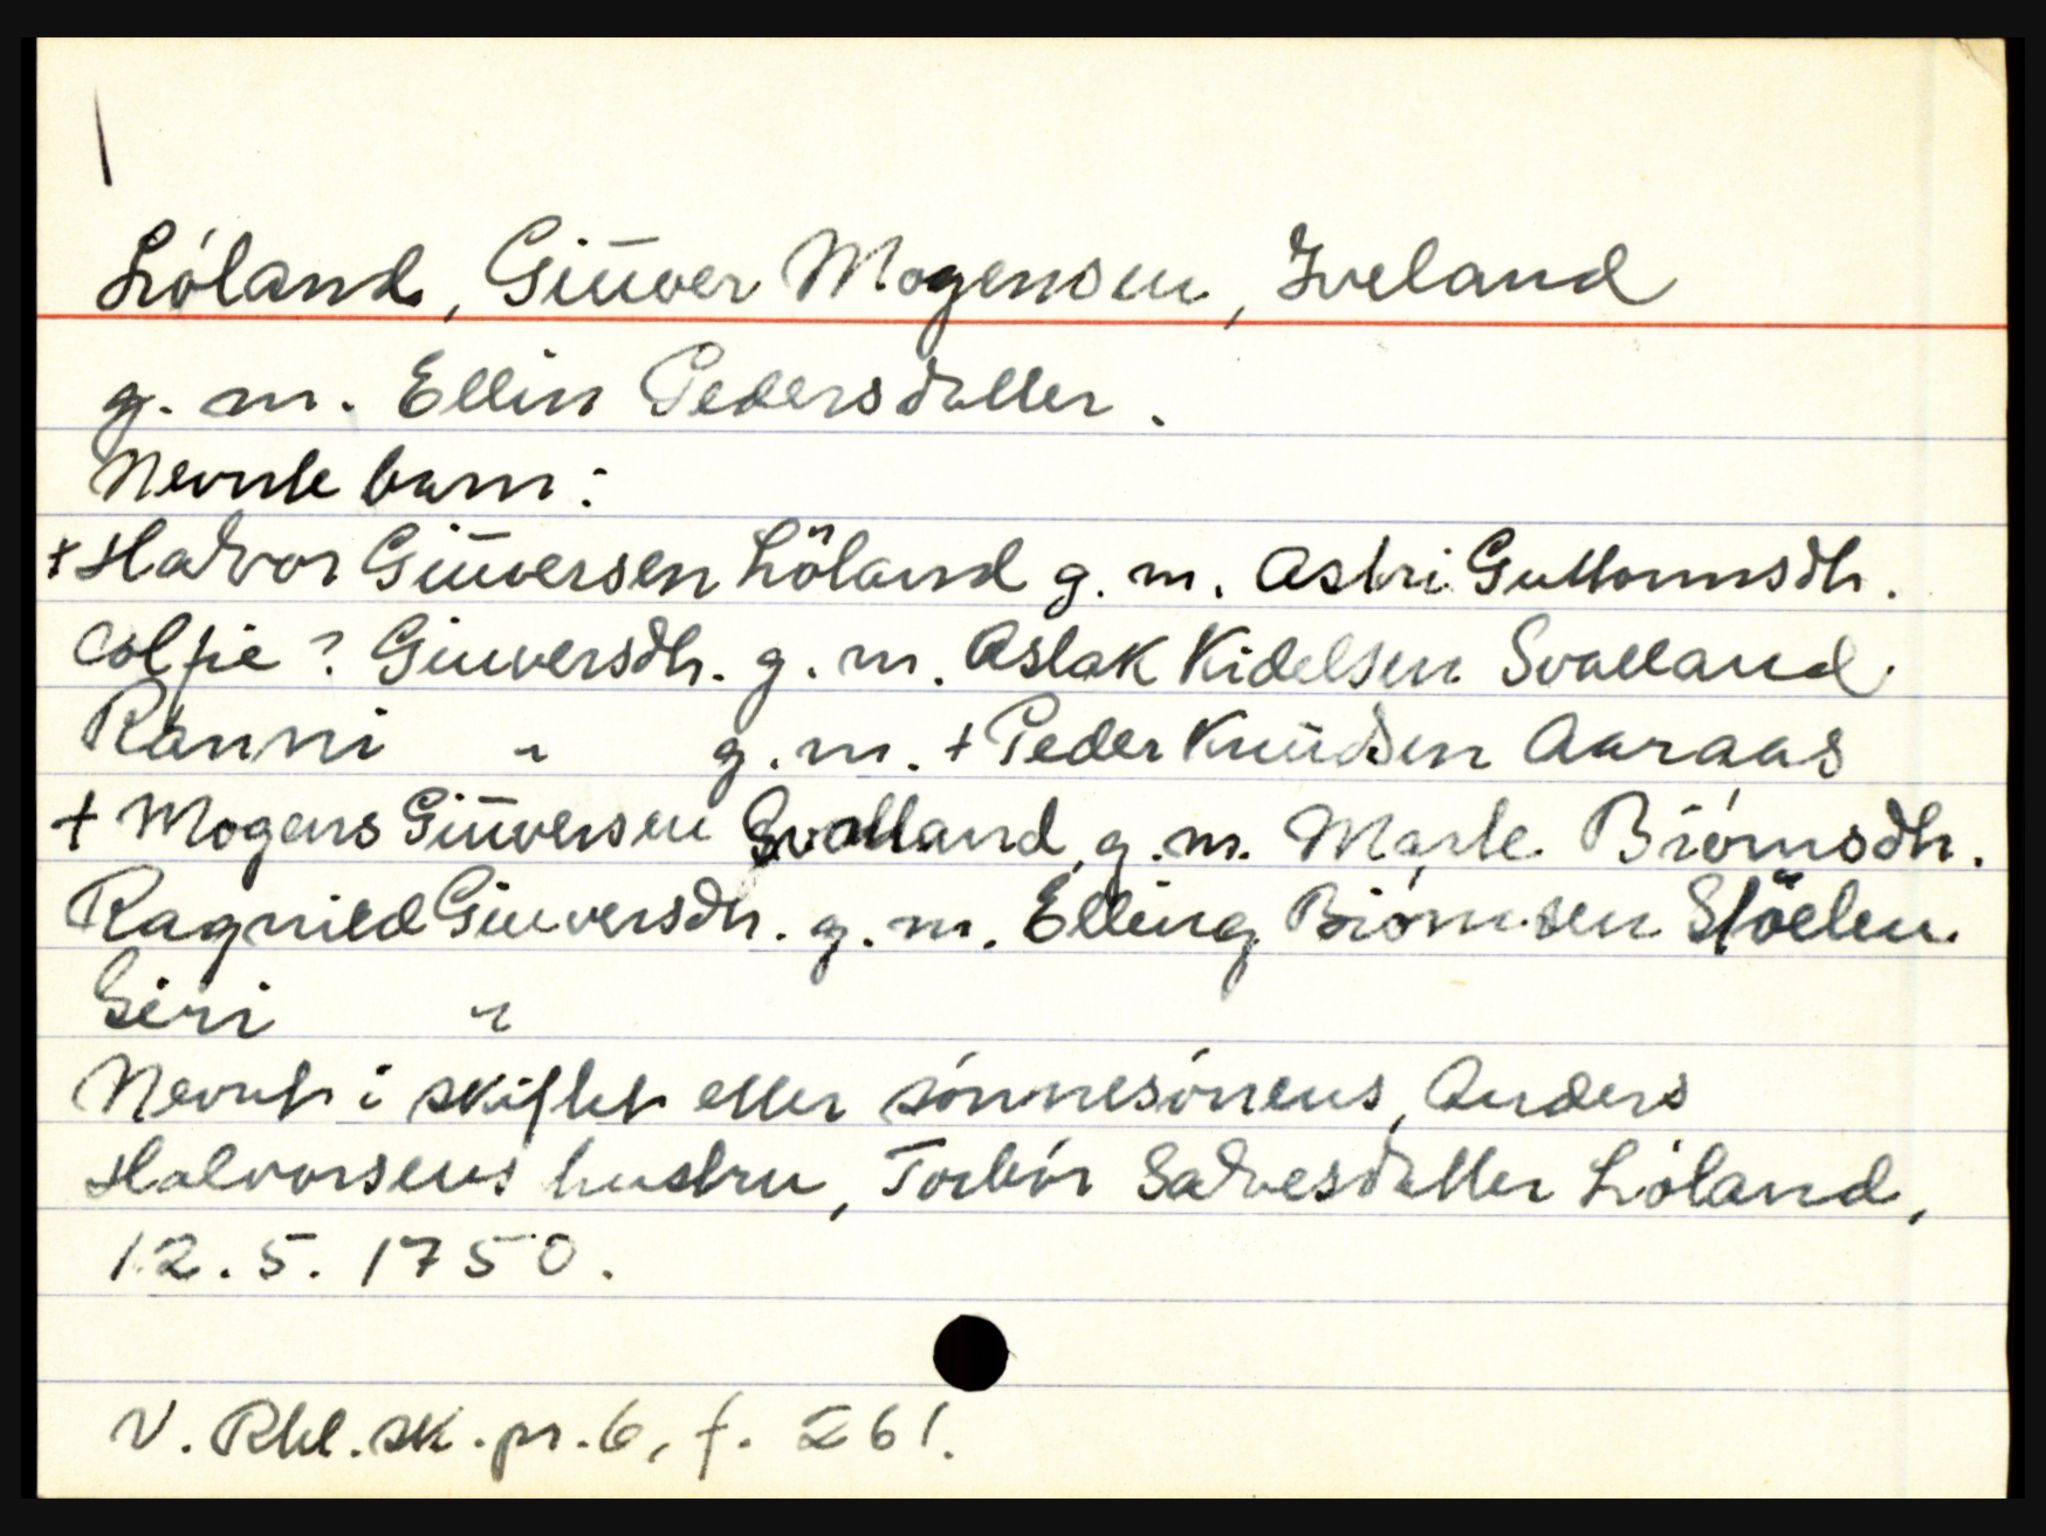 Lóland, Giūver Mogensen, Iveland
g. m. Ellin Pedersdatter.
Nevnte barn:
+ Halvor Giūversen Löland g. m. Astri Guttormsdtr.
Giuversdtr. g. m. Aslak Kidelsen Svalland
Ranni " g. m. + Peder Knudsen Aaraas
+ Mogens Giūversen Svalland, g. m. Marte Biórnsdtr.
Ragnild Giuversdtr. g. m. Elling Biórnsen Stöelen
Siri "
Nevnt i skiftet etter sónnesónens, Anders
Halvorsens hustru, Torbór Salvesdatter Lóland,
12.5.1750.
V. Rbl. sk. pr. 6, f. 261.